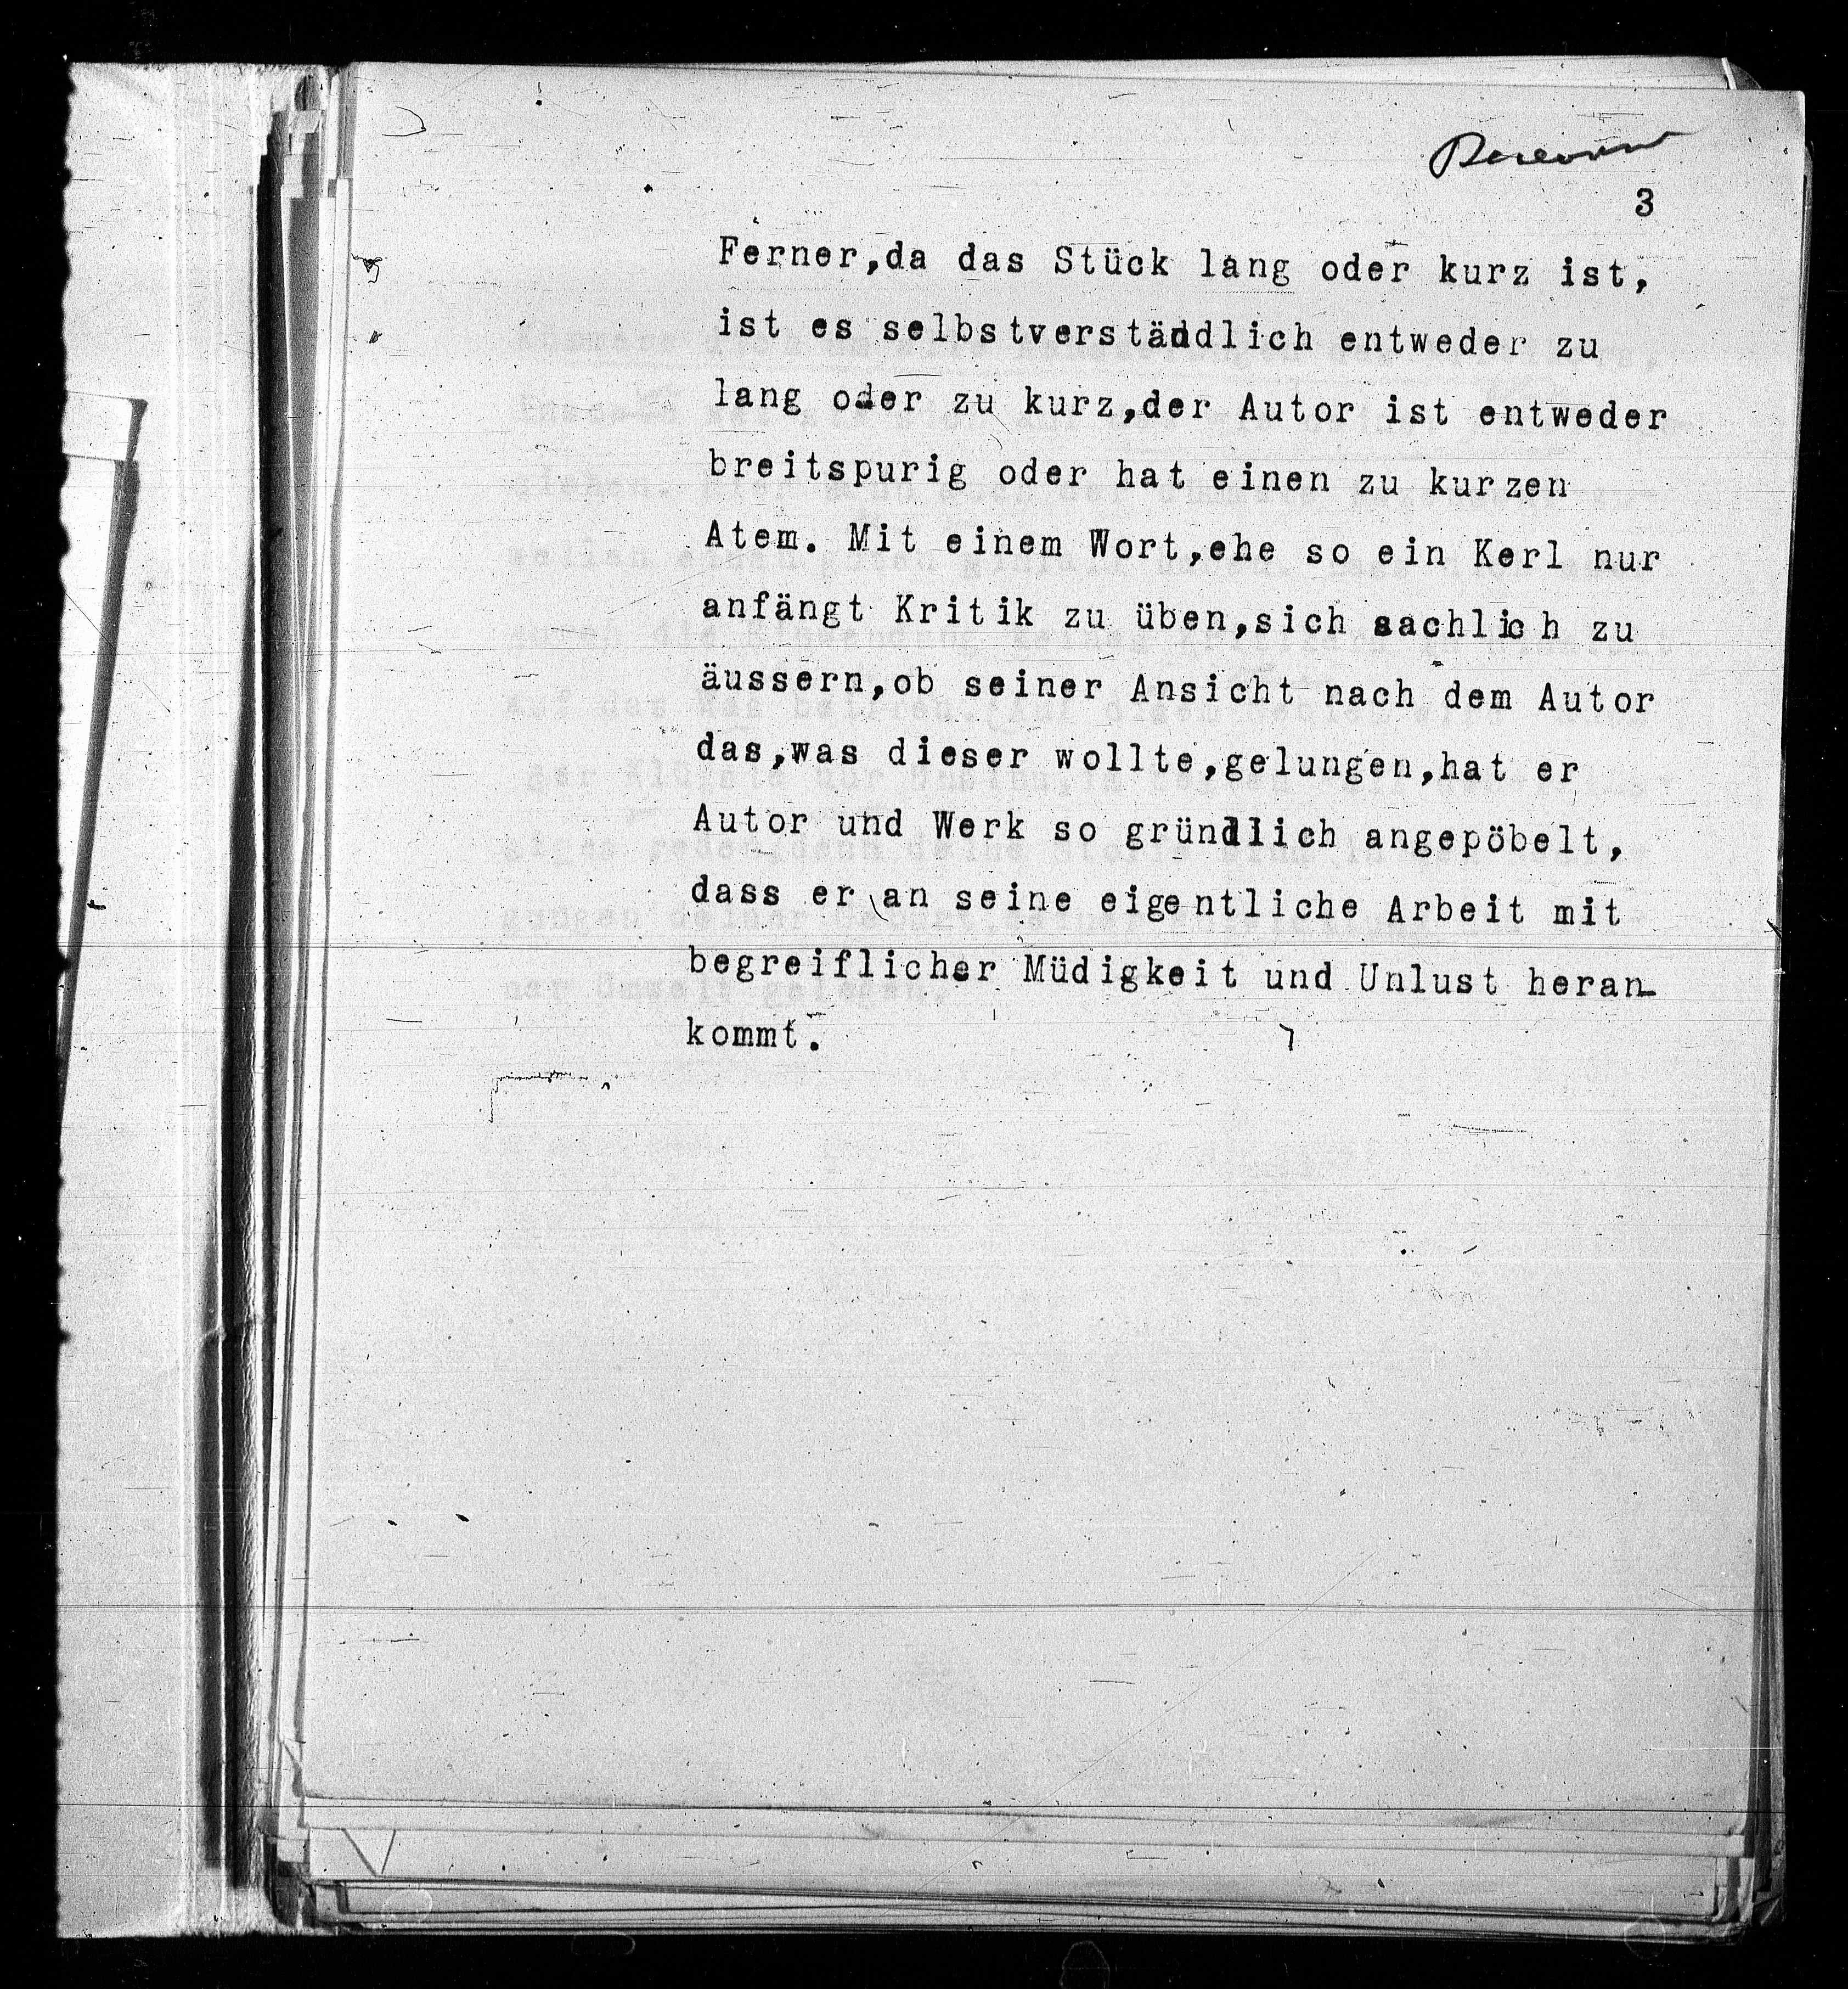 3
Ferner,da das Stück lang oder kurz ist,
ist es selbstverständlich entweder zu
lang oder zu kurz,der Autor ist entweder
breitspurig oder hat einen zu kurzen
Atem. Mit einem Wort,ehe so ein Kerl nur
anfängt Kritik zu üben,sich sachlich zu
äussern,ob seiner Ansicht nach dem Autor
das,was dieser wollte,gelungen,hat er
Autor und Werk so gründlich angepöbelt,
dass er an seine eigentliche Arbeit mit
begreiflicher Müdigkeit und Unlust heran-
kommt.